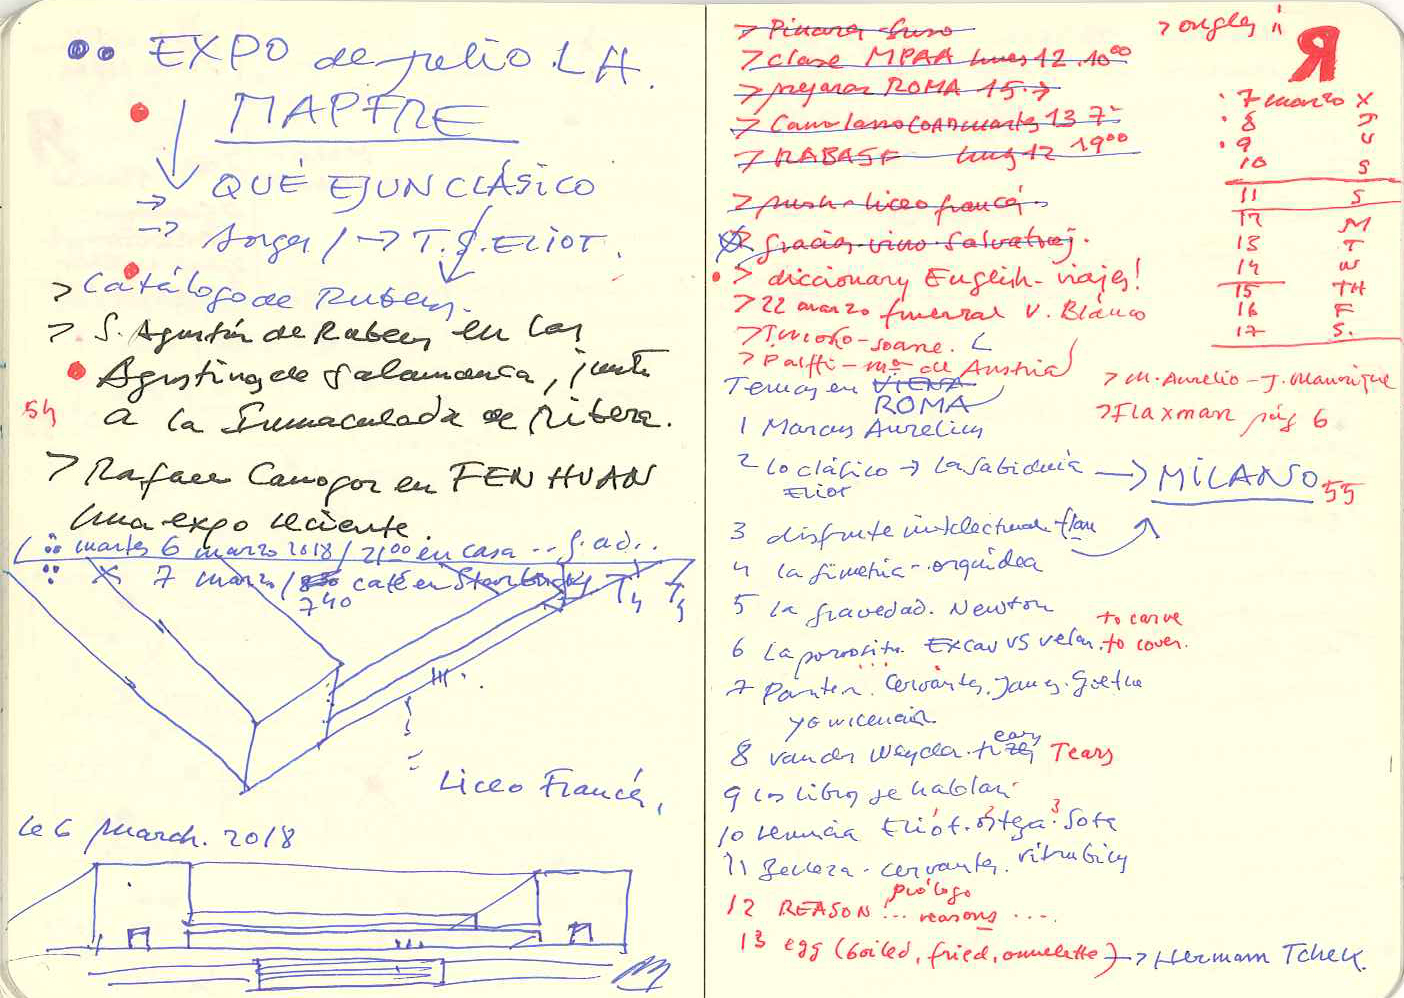 EXPO de julio LH.
MAPFRE
QUÉ ES UN CLÁSICO
→ T.S. ELIOT.
> Catálogo de Rubens.
> S. Agustín de Rubens en las
Agustinas de Salamanca, junto
54
a la Inmaculada de Ribera.
> Rafael Canogar en FEN HUAN
una expo reciente.
martes 6 marzo 2018 / 21 00 en casa
7 marzo / café en Starbucks T4
7 40
Liceo Francés,
le 6 March. 2018
> clase MPAA lunes 12. 10 00
> preparar ROMA 15 →
> RABASF lunes 12 19 00
> push - liceo francés.
> gracias vino Salvatraj.
> diccionary English - viajes!
> 22 marzo funeral V. Blanco
- soane.
> Palffi - de Austria
> ongles ii
R
7 marzo X
8 J
9 V
10 S
11 S
12 M
13 T
14 W
15 TH
16 F
17 S.
> M. Aurelio - J. Manrique
> Flaxman pág 6
Temas en VIENA
ROMA
1 Marcus Aurelius
2 Lo clásico → La sabiduría → MILANO 55
ELIOT
3 disfrute intelectual
4 la simetría - orquídea
5 la gravedad. Newton
6 La porosita. Excav vs velar. to carve
to cover.
7 Cervantes. Goethe
8 van der Weyden. Tears
9 Los libros se hablan
10 renuncia Eliot. Ortega. Sota
11 Belleza - Cervantes. Vitrubius
prólogo
12 REASON ... reasons ....
13 egg (boiled, fried, omelette) → Hermann Tcheck.